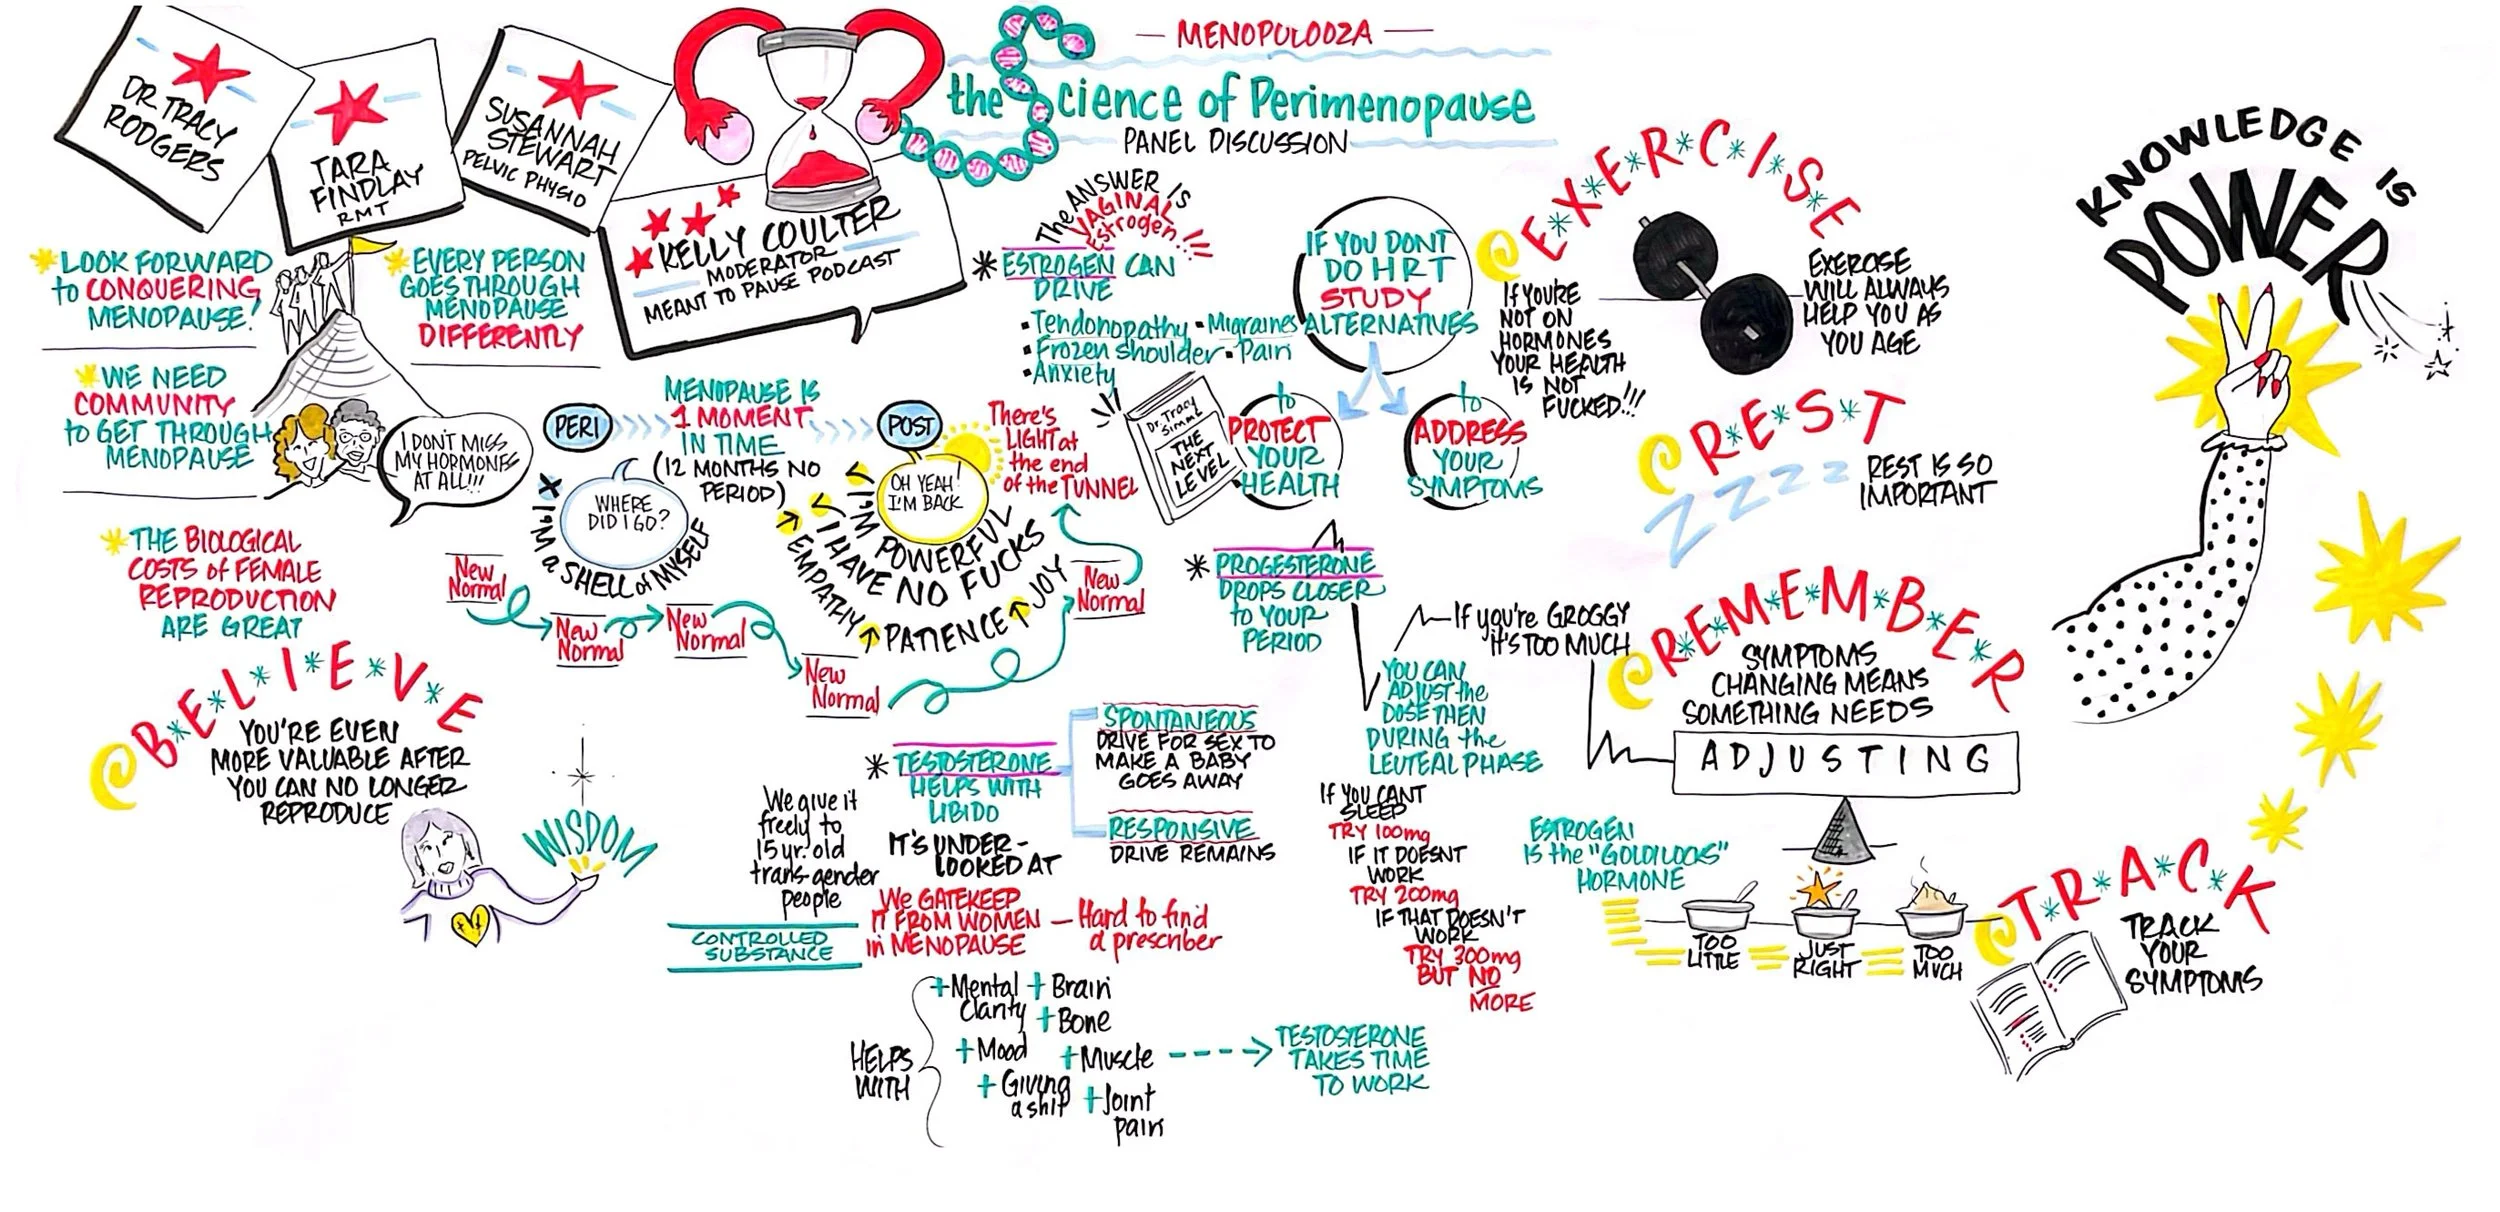 — MENOPULOOZA —
the Science of Perimenopause
PANEL DISCUSSION
DR TRACY
RODGERS
TARA
FINDLAY
RMT
SUSANNAH
STEWART
PELVIC PHYSIO
KELLY COULTER
MODERATOR
MEANT TO PAUSE PODCAST
LOOK FORWARD
to CONQUERING
MENOPAUSE!
EVERY PERSON
GOES THROUGH
MENOPAUSE
DIFFERENTLY
WE NEED
COMMUNITY
to GET THROUGH
MENOPAUSE
I DON'T MISS
MY HORMONES
AT ALL!!!
THE BIOLOGICAL
COSTS of FEMALE
REPRODUCTION
ARE GREAT
B*E*L*I*E*V*E
YOU'RE EVEN
MORE VALUABLE AFTER
YOU CAN NO LONGER
REPRODUCE
WISDOM
PERI
MENOPAUSE IS
1 MOMENT
IN TIME
(12 MONTHS NO
PERIOD)
POST
WHERE
DID I GO?
X I'M a SHELL of MYSELF
OH YEAH!
I'M BACK
I'M POWERFUL
I HAVE NO FUCKS
EMPATHY
PATIENCE
JOY
There's
LIGHT at
the end
of the TUNNEL
New
Normal
New
Normal
New
Normal
New
Normal
New
Normal
The ANSWER IS
VAGINAL
Estrogen!!!
* ESTROGEN CAN
DRIVE
▪ Tendonopathy ▪ Migraines
▪ Frozen shoulder ▪ Pain
▪ Anxiety
IF YOU DONT
DO HRT
STUDY
ALTERNATIVES
to
PROTECT
YOUR
HEALTH
to
ADDRESS
YOUR
SYMPTOMS
Dr. Tracy
Simms
THE
NEXT
LEVEL
* PROGESTERONE
DROPS CLOSER
to YOUR
PERIOD
If you're GROGGY
it's TOO MUCH
YOU CAN
ADJUST the
DOSE THEN
DURING the
LEUTEAL PHASE
IF YOU CANT
SLEEP
TRY 100mg
IF IT DOESNT
WORK
TRY 200mg
IF THAT DOESN'T
WORK
TRY 300mg
BUT NO
MORE
* TESTOSTERONE
HELPS WITH
LIBIDO
IT'S UNDER-
LOOKED AT
SPONTANEOUS
DRIVE FOR SEX TO
MAKE A BABY
GOES AWAY
RESPONSIVE
DRIVE REMAINS
We give it
freely to
15 yr. old
trans-gender
people
We GATEKEEP
IT FROM WOMEN
in MENOPAUSE
— Hard to find
a prescriber
CONTROLLED
SUBSTANCE
HELPS
WITH
+Mental
Clarity
+ Brain
+ Bone
+Mood
+Muscle
+ Giving
a shit
+Joint
pain
TESTOSTERONE
TAKES TIME
TO WORK
E*X*E*R*C*I*S*E
If YOU'RE
NOT ON
HORMONES
YOUR HEALTH
IS NOT
FUCKED!!!
EXERCISE
WILL ALWAYS
HELP YOU AS
YOU AGE
R*E*S*T
ZZZZZ
REST IS SO
IMPORTANT
R*E*M*E*M*B*E*R
SYMPTOMS
CHANGING MEANS
SOMETHING NEEDS
ADJUSTING
ESTROGEN
IS the "GOLDILOCKS"
HORMONE
TOO
LITTLE
JUST
RIGHT
TOO
MUCH
T*R*A*C*K
TRACK
YOUR
SYMPTOMS
KNOWLEDGE IS
POWER